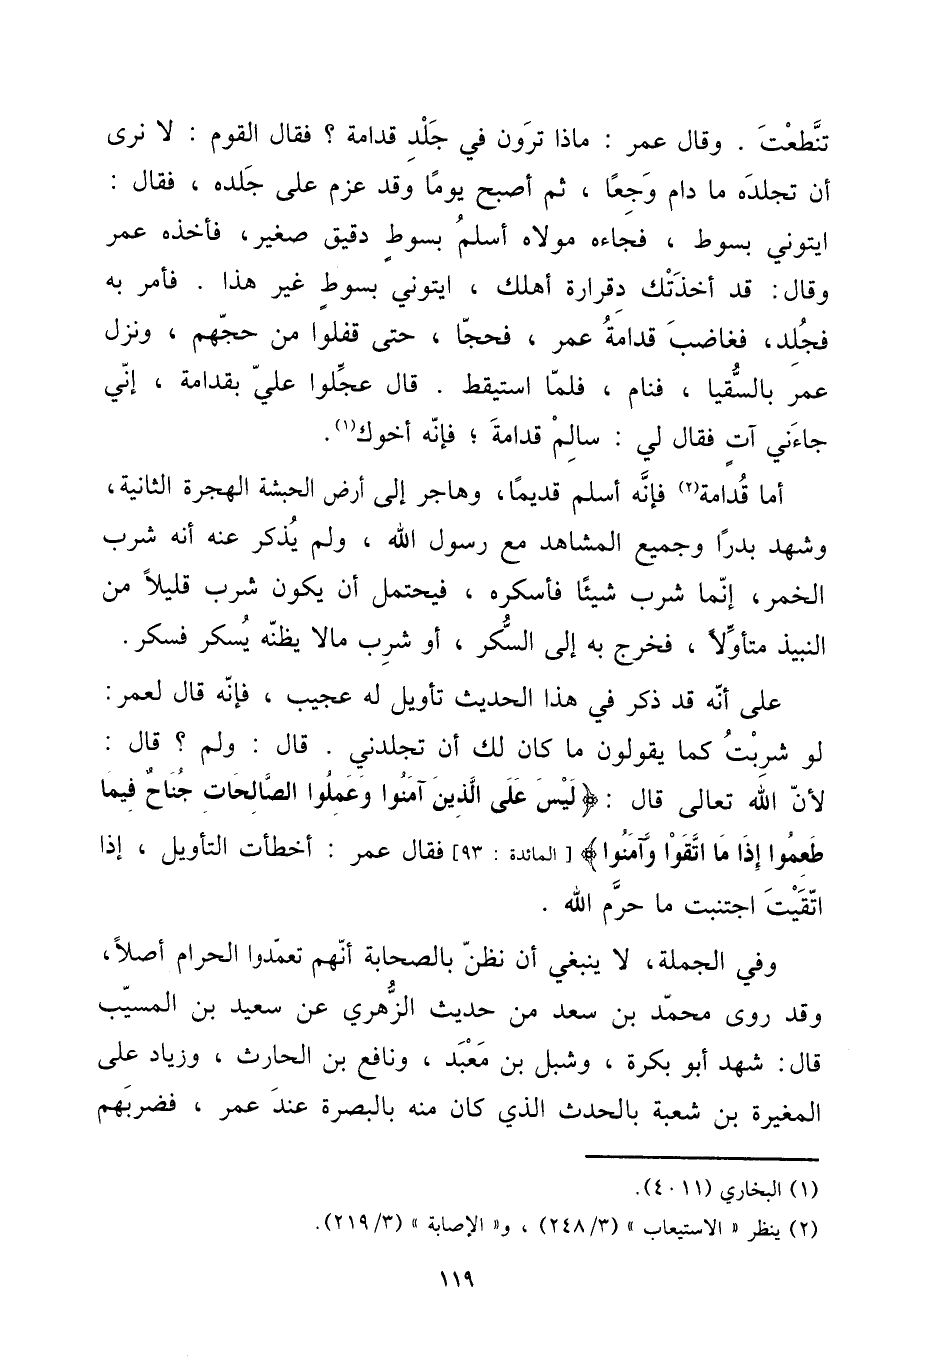 تنَّطعْتَ . وقال عمر : ماذا ترَون في جَلْدِ قدامة ؟ فقال القوم : لا نرى
أن تجلدَه ما دام وَجِعًا ، ثم أصبح يومًا وقد عزم على جَلده ، فقال :
ايتوني بسوط ، فجاءه مولاه أسلمُ بسوطٍ دقيق صغير، فأخذه عمر
وقال: قد أخذَتْك دِقرارة أهلك ، ايتوني بسوطٍ غير هذا . فأمر به
فجُلِد، فغاضبَ قدامةُ عمر ، فحجّا ، حتى قفلوا من حجّهم ، ونزل
عمر بالسُّقيا ، فنام ، فلمّا استيقط . قال عجِّلوا عليّ بقدامة ، إنّي
جاءَني آتٍ فقال لي : سالِمْ قدامةَ ؛ فإنّه أخوك(١).
أما قُدامة(٢) فإنَّه أسلم قديمًا، وهاجر إلى أرض الحبشة الهجرة الثانية،
وشهد بدرًا وجميع المشاهد مع رسول الله ، ولم يُذكر عنه أنه شرب
الخمر، إنّما شرب شيئًا فأسكره ، فيحتمل أن يكون شرب قليلاً من
النبيذ متأوِّلاً ، فخرج به إلى السُّكر ، أو شرِب مالا يظنّه يُسكر فسكر.
على أنّه قد ذكر في هذا الحديث تأويل له عجيب ، فإنّه قال لعمر:
لو شرِبْتُ كما يقولون ما كان لك أن تجلدني . قال : ولم ؟ قال :
لأنّ الله تعالى قال : ﴿لَيْسَ عَلَى الَّذِينَ آمَنُوا وَعَمِلُوا الصَّالِحَاتِ جُنَاحٌ فِيمَا
طَعِمُوا إِذَا مَا اتَّقَوْا وَّآمَنُوا﴾ [ المائدة : ٩٣] فقال عمر : أخطأت التأويل ، إذا
اتّقَيْتَ اجتنبت ما حرَّم الله .
وفي الجملة، لا ينبغي أن نظنّ بالصحابة أنّهم تعمّدوا الحرام أصلاً،
وقد روى محمّد بن سعد من حديث الزُّهري عن سعيد بن المسيّب
قال: شهد أبو بكرة ، وشبل بن مَعْبَد ، ونافع بن الحارث ، وزياد على
المغيرة بن شعبة بالحدث الذي كان منه بالبصرة عندَ عمر ، فضربَهم
(١) البخاري (٤٠١١).
(٢) ينظر « الاستيعاب » (٢٤٨/٣) ، و« الإصابة » (٢١٩/٣).
١١٩